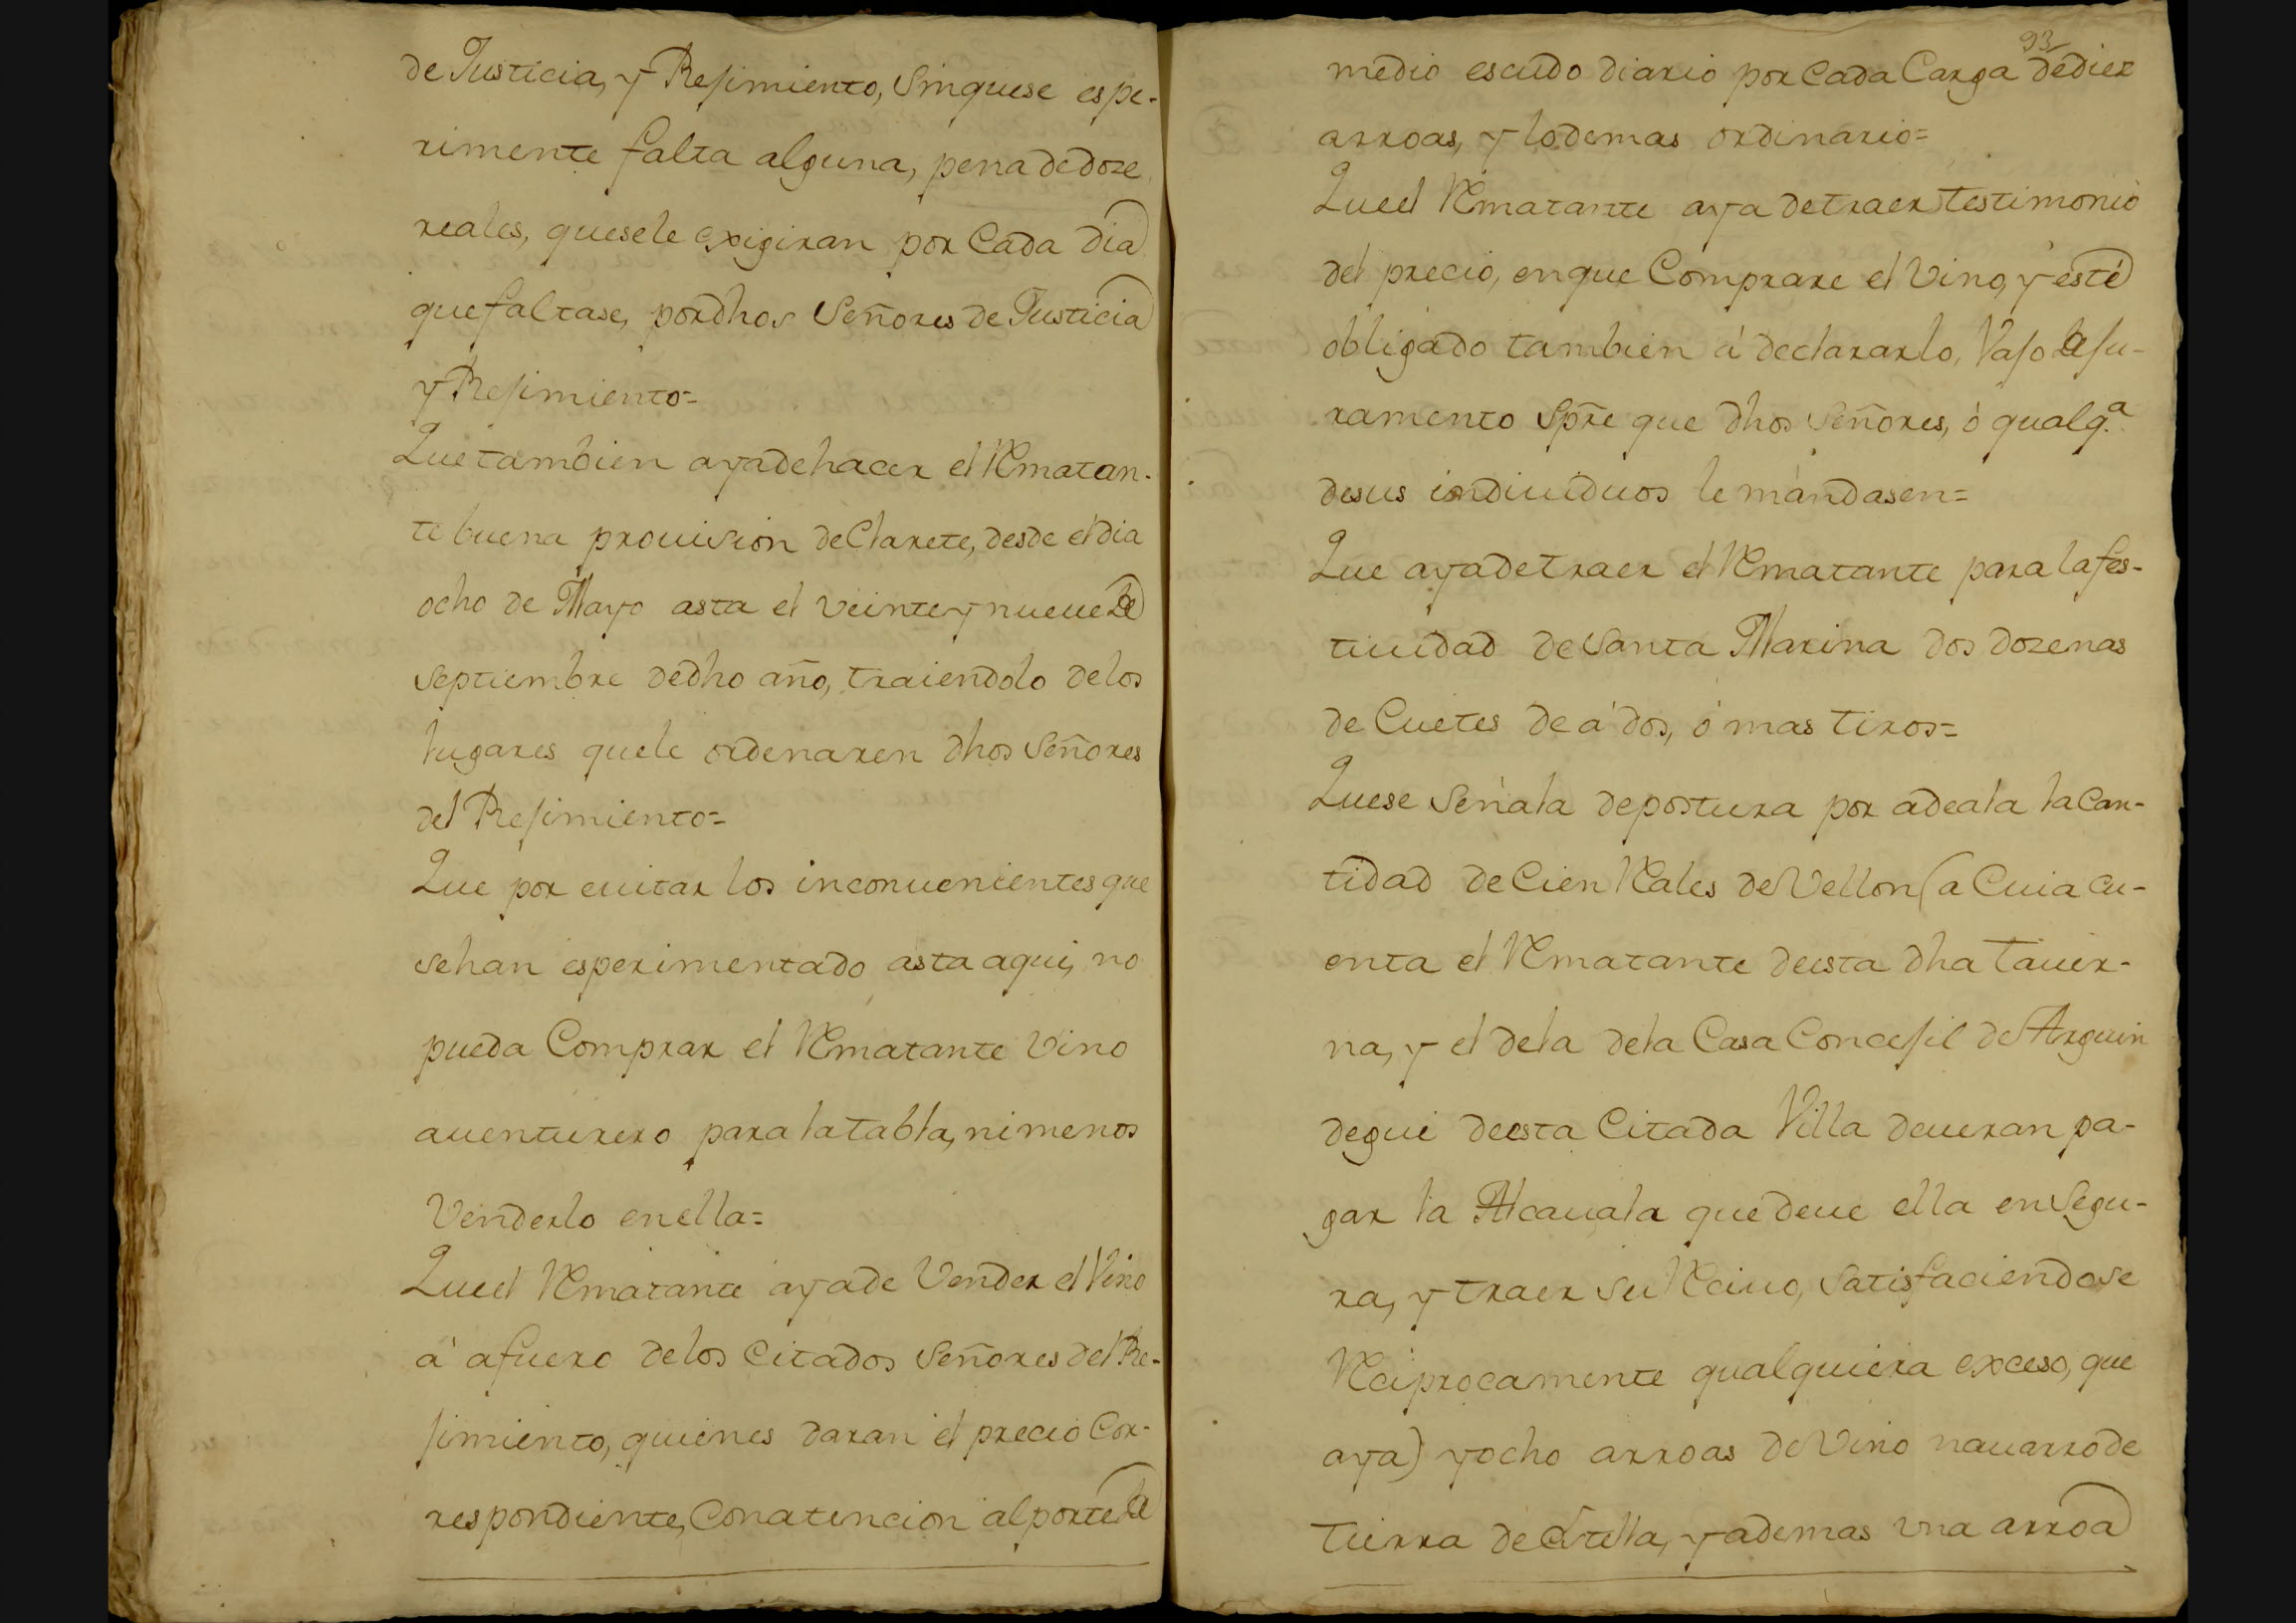 de Justicia, y Rejimiento, sinquese espe-
rimente falta alguna, pena dedoze
reales, quesele exigiran por Cada dia
quefaltase, pordhos Señores de Justicia
y Rejimiento=
Que tambien ayadehacer el Rematan-
te buena prouision deClarete, desde eldia
ocho de Mayo asta el veinteynueue de
septiembre dedho año, traiendolo delos
lugares quele ordenaren dhos Señores
del Rejimiento=
Que por euitar los inconuenientesque
sehan esperimentado asta aqui, no
pueda Comprar el Rematante Vino
auenturero para latabla, nimenos
Venderlo enella=
Queel Rematante ayade Vender el Vino
á afuero delos Citados Señores del Re-
jimiento, quienes daran el precio Cor-
respondiente, Conatencion alporte de
93
medio escudo diario por Cada Carga dediez
arroas, y lodemas ordinario=
Queel Rematante aya detraer testimonio
del precio, enque Comprare el Vino, y esté
obligado tambien á declararlo, Vajo deju-
ramento Spre que dhos Señores, ó qualqª
desus indiuiduos le mandasen=
Que ayadetraer el Rematante para lafes-
tiuidad deSanta Marina dos dozenas
de Cuetes de á dos, ó mas tiros=
Quese Señala depostura por adeala laCan-
tidad deCien Reales deVellon (a Cuia cu-
enta el Rematante deesta dha tauer-
na, y el dela dela Casa Concejil de Arguin
degui deesta Citada Villa deueran pa-
gar la Alcauala quedeue ella enSegu-
ra, y traer su Reciuo, satisfaciendose
Reciprocamente qualquiera exceso, que
aya) yocho arroas deVino nauarrode
tierra deEstella, yademas vna arroa